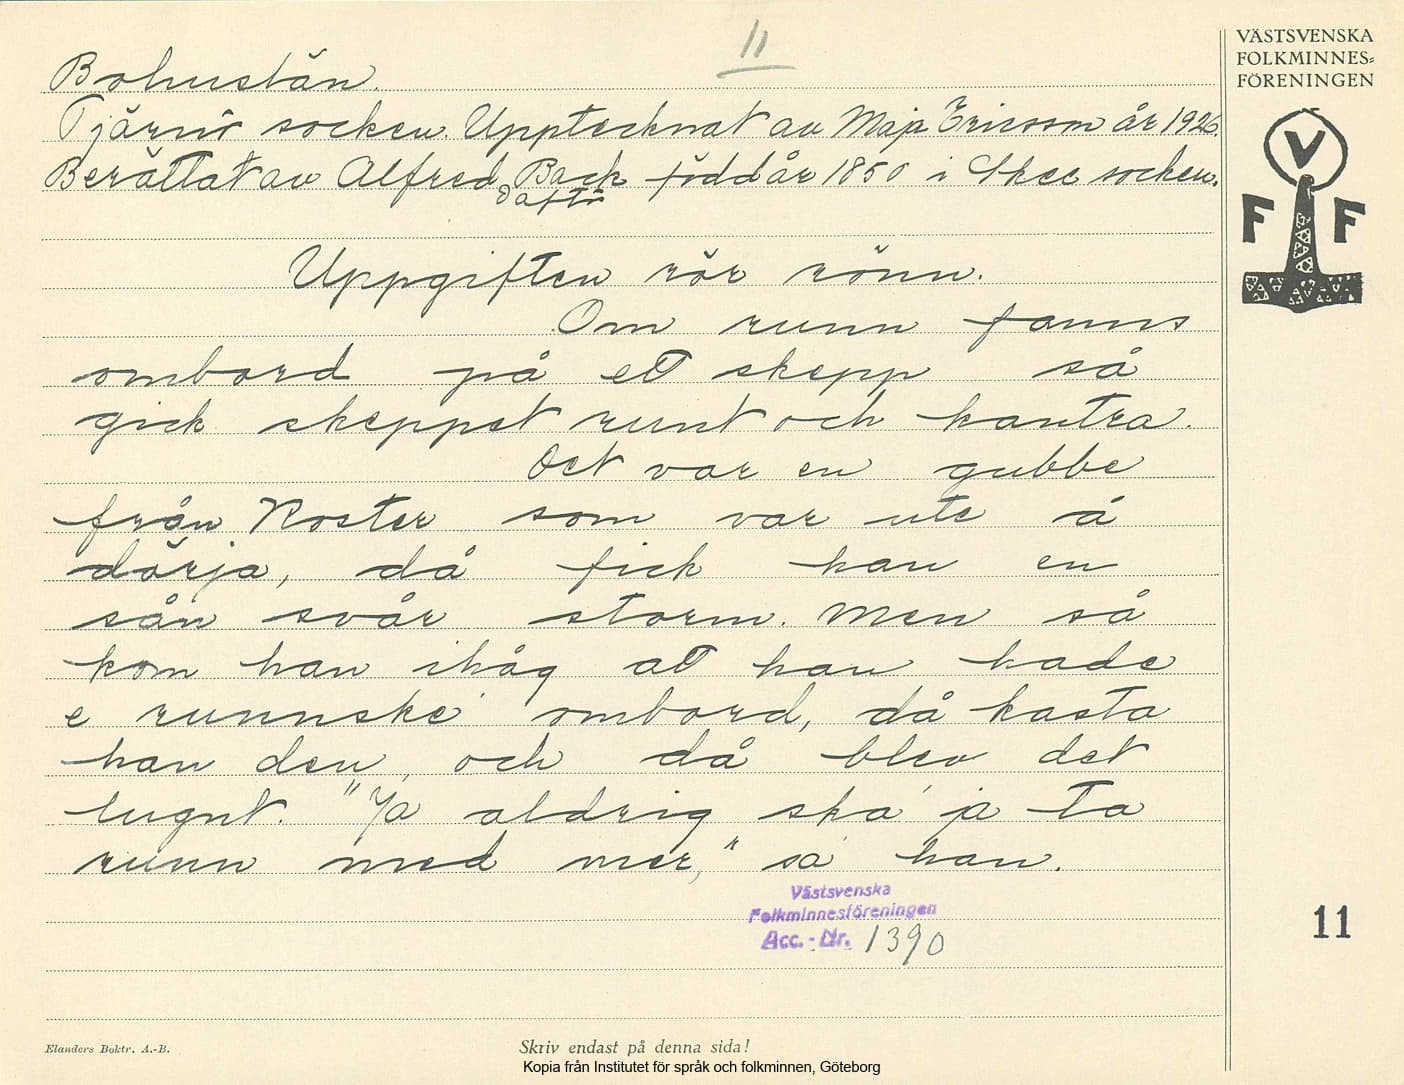 11
Bohuslän.
Tjärnö socken. Upptecknat av Maja Ericsson år 1926.
Berättat av Alfred Back född år 1850 i Skee socken.
Daftö
Uppgiften rör rönn.
Om runn fanns
ombord på ett skepp så
gick skeppet runt och kantra.
Det var en gubbe
från Koster som var ute å
dörja, då fick han en
sån svår storm. Men så
kom han ihåg att han hade
e runnske' ombord, då kasta
han den, och då blev det
lugnt. "Ja aldrig ska' ja ta
runn med mer," sa han.
Västsvenska
Folkminnesföreningen
Acc. - Nr. 1390
Elanders Boktr. A.-B.
Skriv endast på denna sida!
Kopia från Institutet för språk och folkminnen, Göteborg
VÄSTSVENSKA
FOLKMINNES=
FÖRENINGEN
V
F F
11